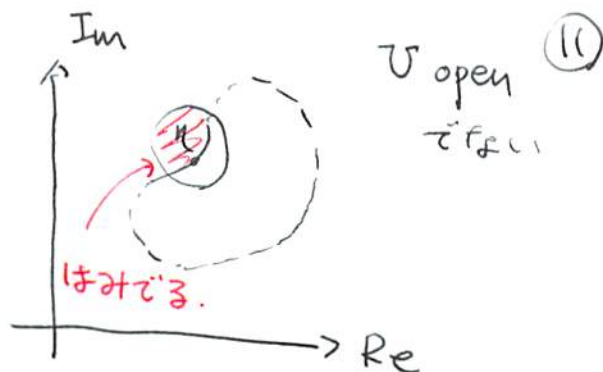 Im
U open
⑪
でない
η
はみでる.
Re